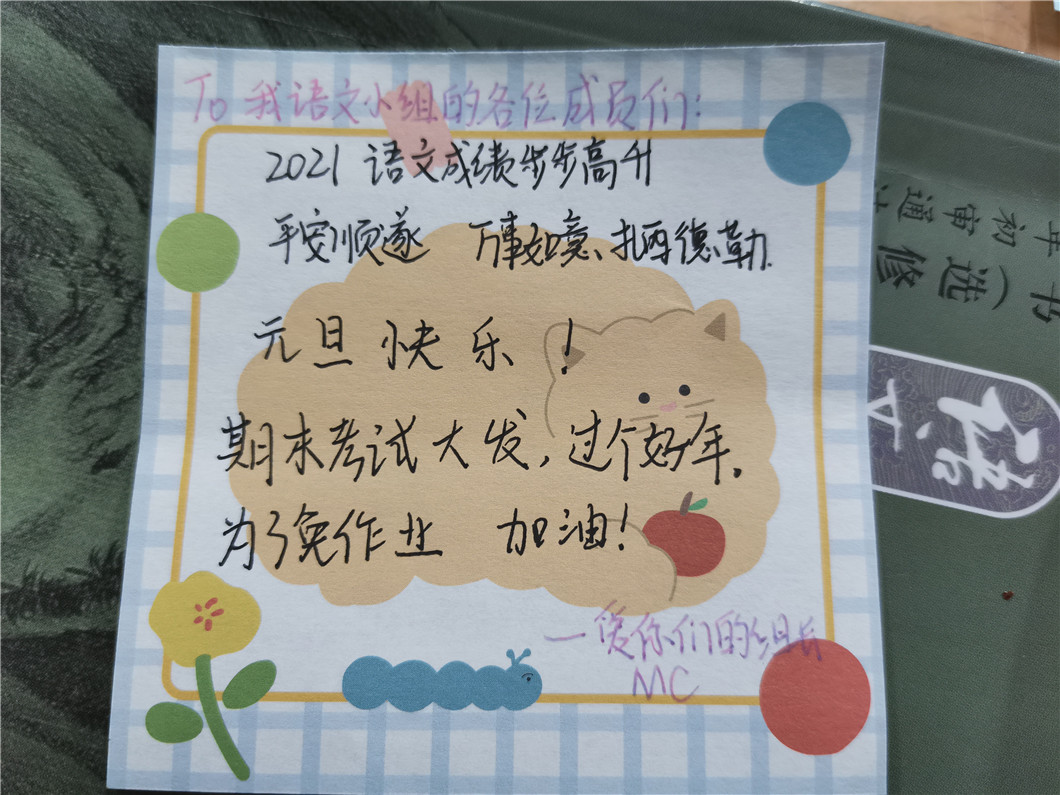 To 我语文小组的各位成员们：
2021 语文成绩步步高升
平安顺遂 万事如意、扎西德勒.
元旦快乐！
期末考试大发，过个好年.
为了免作业 加油！
—爱你们的组长
MC
年初审通
书（选修